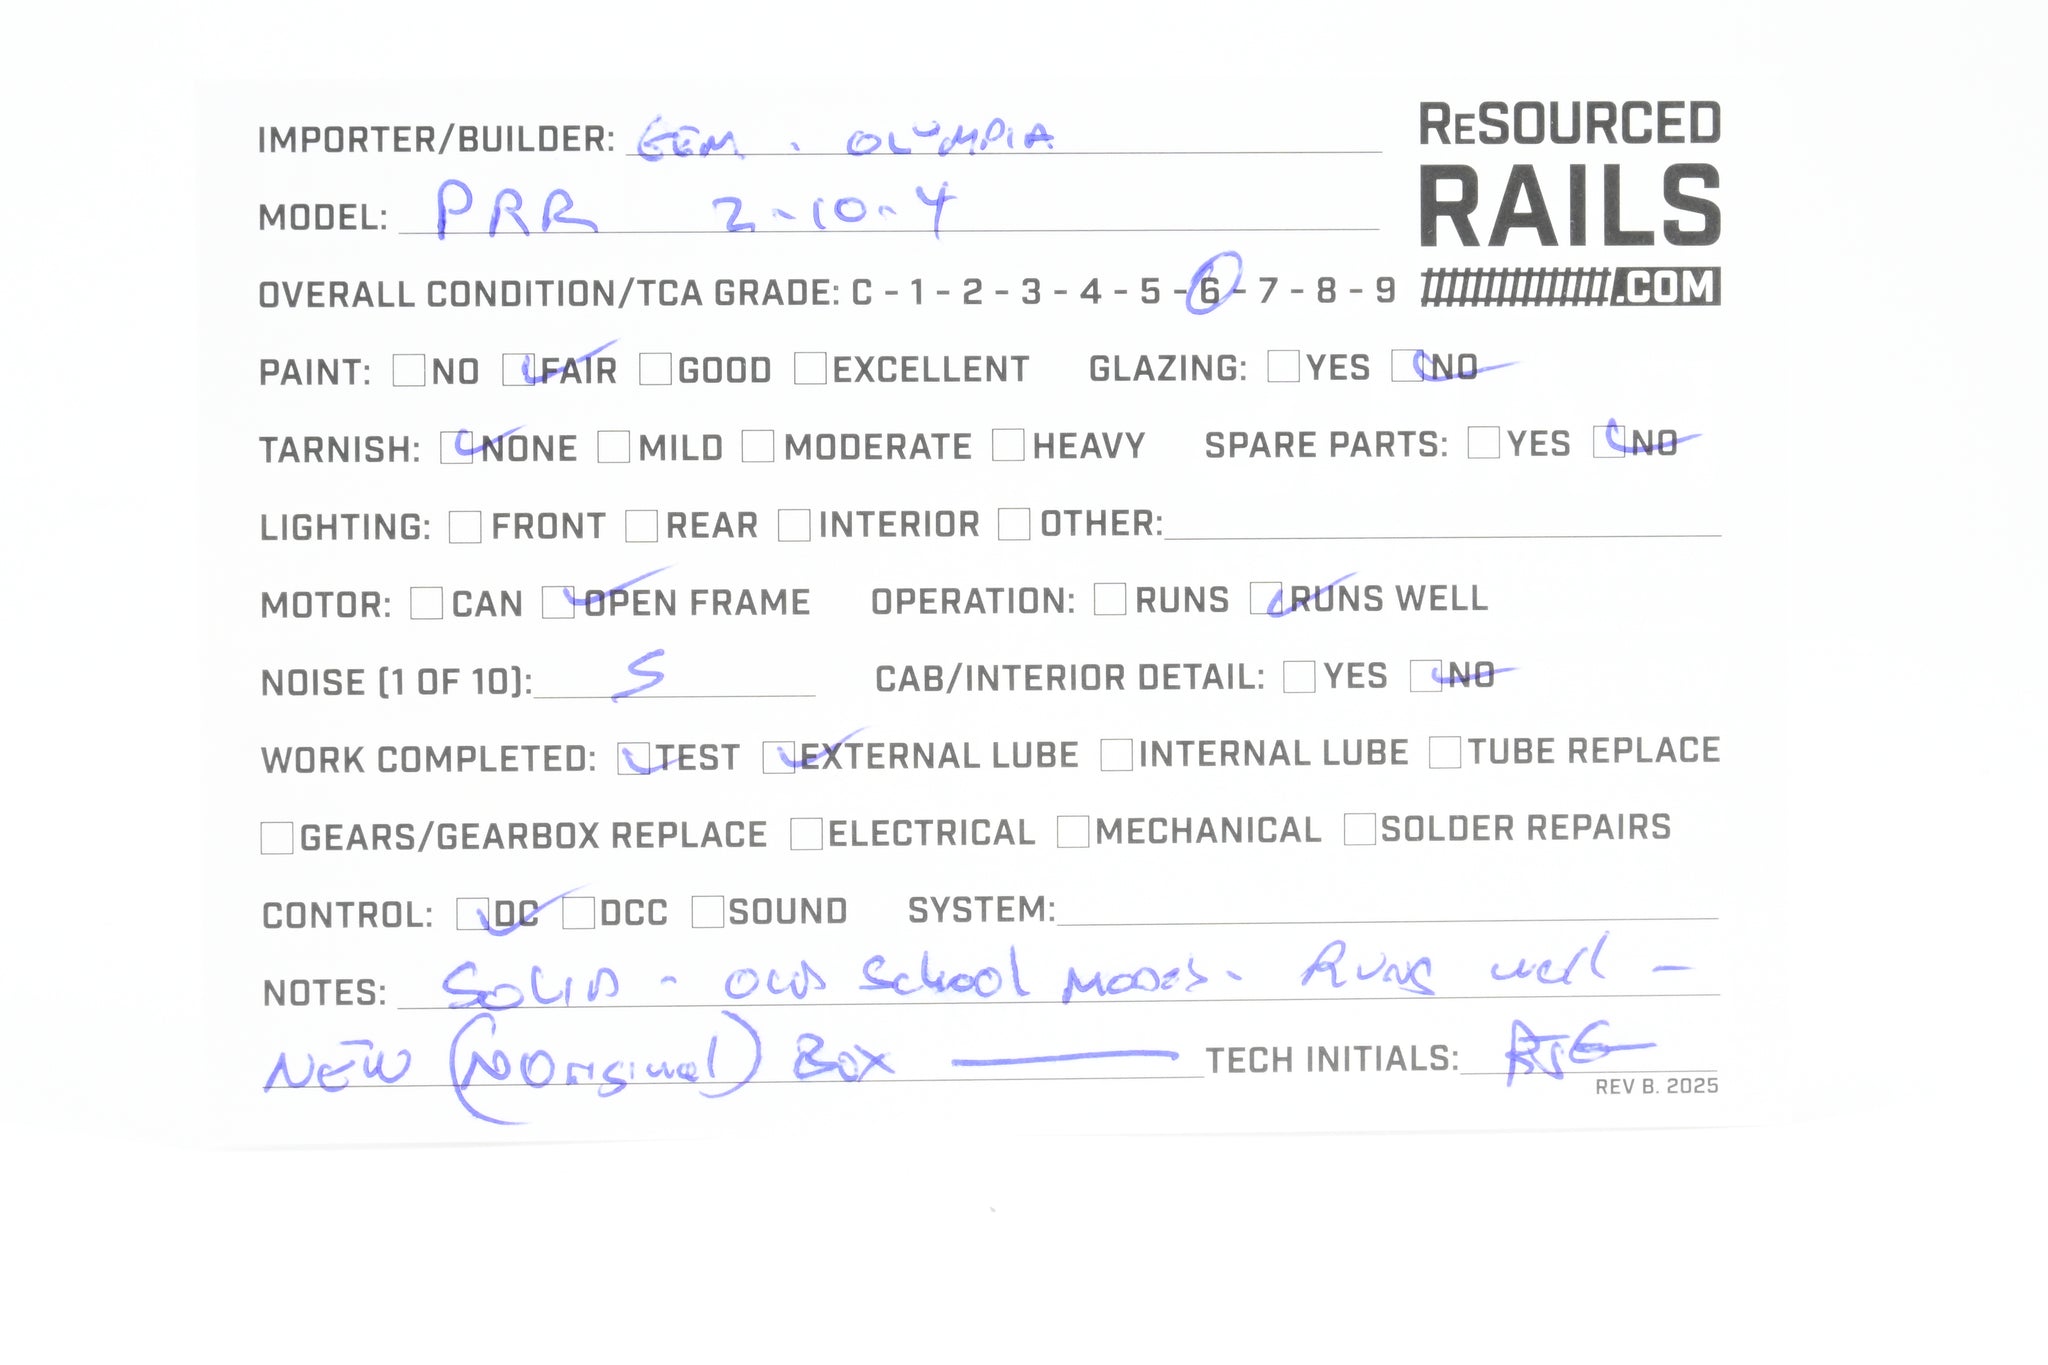 IMPORTER/BUILDER: GEM . OLYMPIA
ReSOURCED
RAILS
.COM
MODEL: PRR 2-10-4
OVERALL CONDITION/TCA GRADE: C - 1 - 2 - 3 - 4 - 5 - 6 - 7 - 8 - 9
PAINT: NO FAIR GOOD EXCELLENT GLAZING: YES NO
TARNISH: NONE MILD MODERATE HEAVY SPARE PARTS: YES NO
LIGHTING: FRONT REAR INTERIOR OTHER:
MOTOR: CAN OPEN FRAME OPERATION: RUNS RUNS WELL
NOISE (1 OF 10): 5 CAB/INTERIOR DETAIL: YES NO
WORK COMPLETED: TEST EXTERNAL LUBE INTERNAL LUBE TUBE REPLACE
GEARS/GEARBOX REPLACE ELECTRICAL MECHANICAL SOLDER REPAIRS
CONTROL: DC DCC SOUND SYSTEM:
NOTES: SOLID - OLD School Model - Runs well -
NEW (NOoriginal) BOX TECH INITIALS:
REV B. 2025